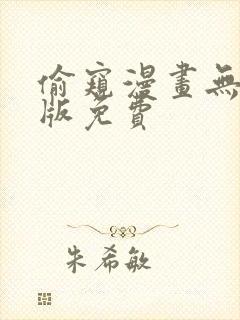 偷窺漫畫無
版免費
朱希敏